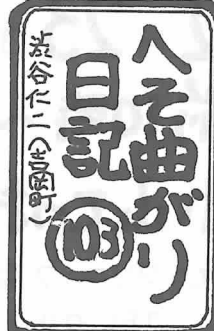 へそ曲がり
日記
103
渋谷仁二(吉岡町)